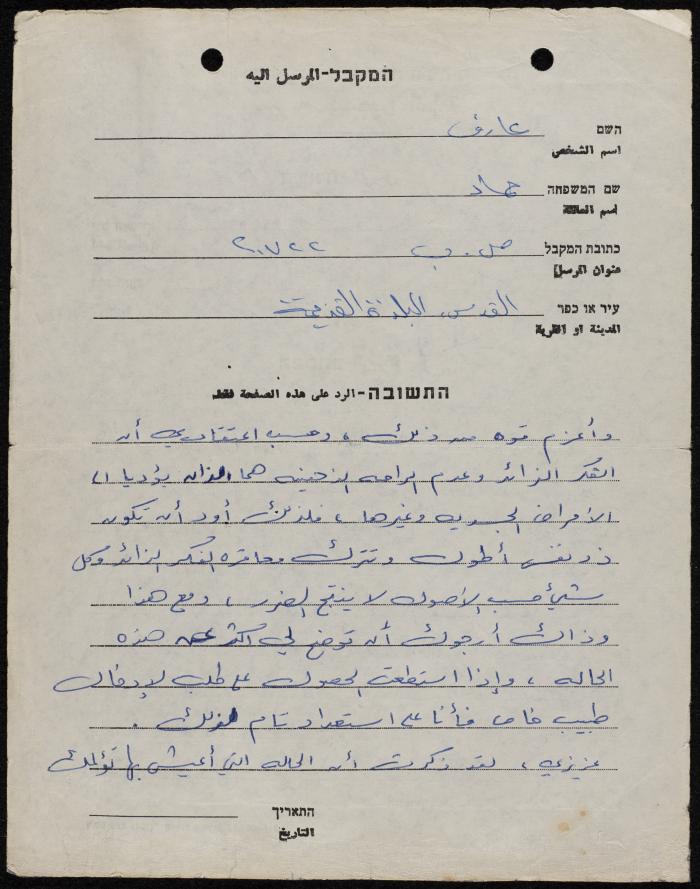 המקבל-المرسل اليه
השם عارف
اسم الشخصي
שם המשפחה حماد
اسم العائلة
כתובת המקבל ص.ب ٢٠٧٢٢
عنوان المرسل
עיר או כפר القدس، البلدة القديمة
المدينة او القرية
התשובה-الرد على هذه الصفحة فقط
وأعزم قوه من ذلك ، وحسب اعتقادي أن
الفكر الزائد وعدم الراحه الذهنيه هما اللذان يؤديا الى
الأمراض الجسديه وغيرها ، فلذلك أود أن تكون
ذو نفس أطول وتترك الفكر الزائد وكل
شيء حسب الأصول لا ينتج الضرر ، ومع هذا
وذاك أرجوك أن توضح لي أكثر عن هذه
الحاله ، وإذا استطعت الحصول على طلب لإدخال
طبيب خاص فأنا على استعداد تام لذلك .
عزيزي ، لقد ذكرت أن الحاله التي أعيش بها تؤلمك
התאריך
التاريخ